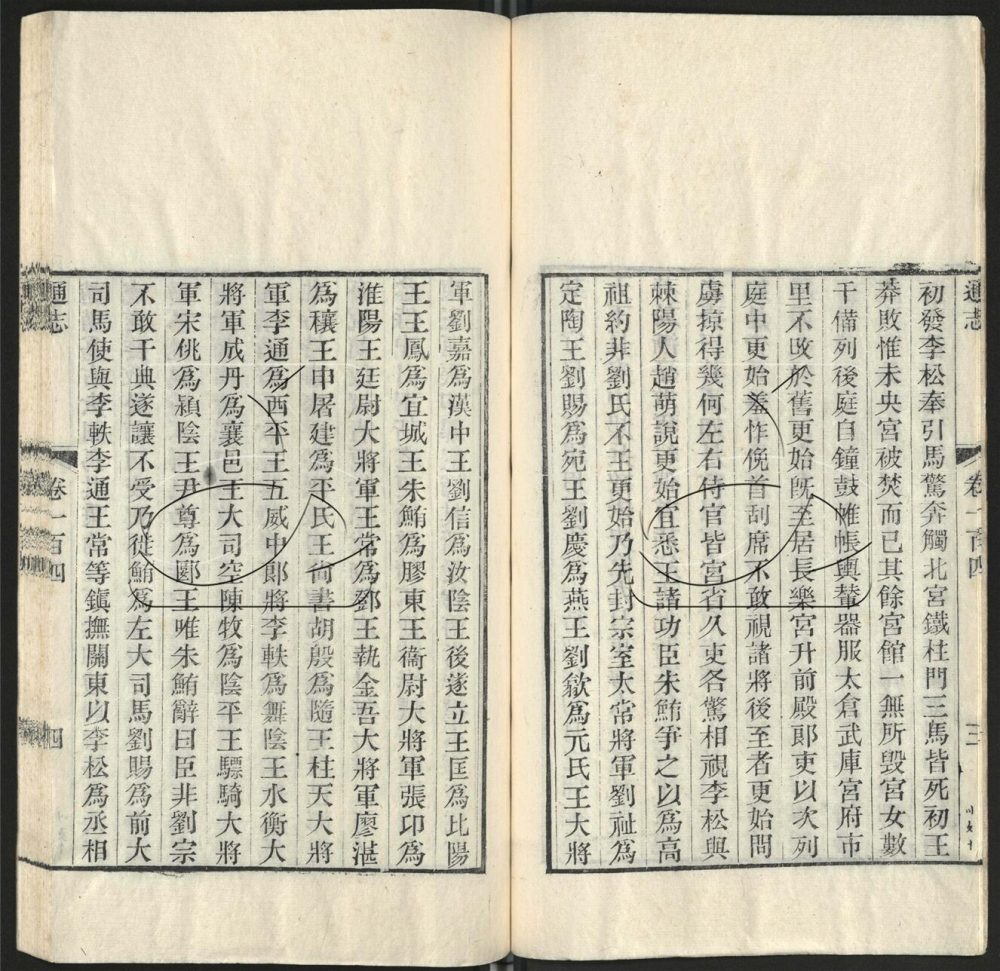 通志 卷一百四 三
初發李松奉引馬驚奔觸北宮鐵柱門三馬皆死初王
莽敗惟未央宮被焚而已其餘宮館一無所毀宮女數
千備列後庭自鐘鼓帷帳輿輦器服太倉武庫宮府市
里不改於舊更始旣至居長樂宮升前殿郞吏以次列
庭中更始羞怍俛首刮席不敢視諸將後至者更始問
虜掠得幾何左右侍官皆宮省久吏各驚相視李松與
棘陽人趙萌說更始宜悉王諸功臣朱鮪爭之以爲高
祖約非劉氏不王更始乃先封宗室太常將軍劉祉爲
定陶王劉賜爲宛王劉慶爲燕王劉歙爲元氏王大將
軍劉嘉爲漢中王劉信爲汝陰王後遂立王匡爲比陽
王王鳳爲宜城王朱鮪爲膠東王衞尉大將軍張卬爲
淮陽王廷尉大將軍王常爲鄧王執金吾大將軍廖湛
爲穰王申屠建爲平氏王尙書胡殷爲隨王柱天大將
軍李通爲西平王五威中郞將李軼爲舞陰王水衡大
將軍成丹爲襄邑王大司空陳牧爲陰平王驃騎大將
軍宋佻爲潁陰王尹尊爲郾王唯朱鮪辭曰臣非劉宗
不敢干典遂讓不受乃徙鮪爲左大司馬劉賜爲前大
司馬使與李軼李通王常等鎭撫關東以李松爲丞相
通志 卷一百四 四